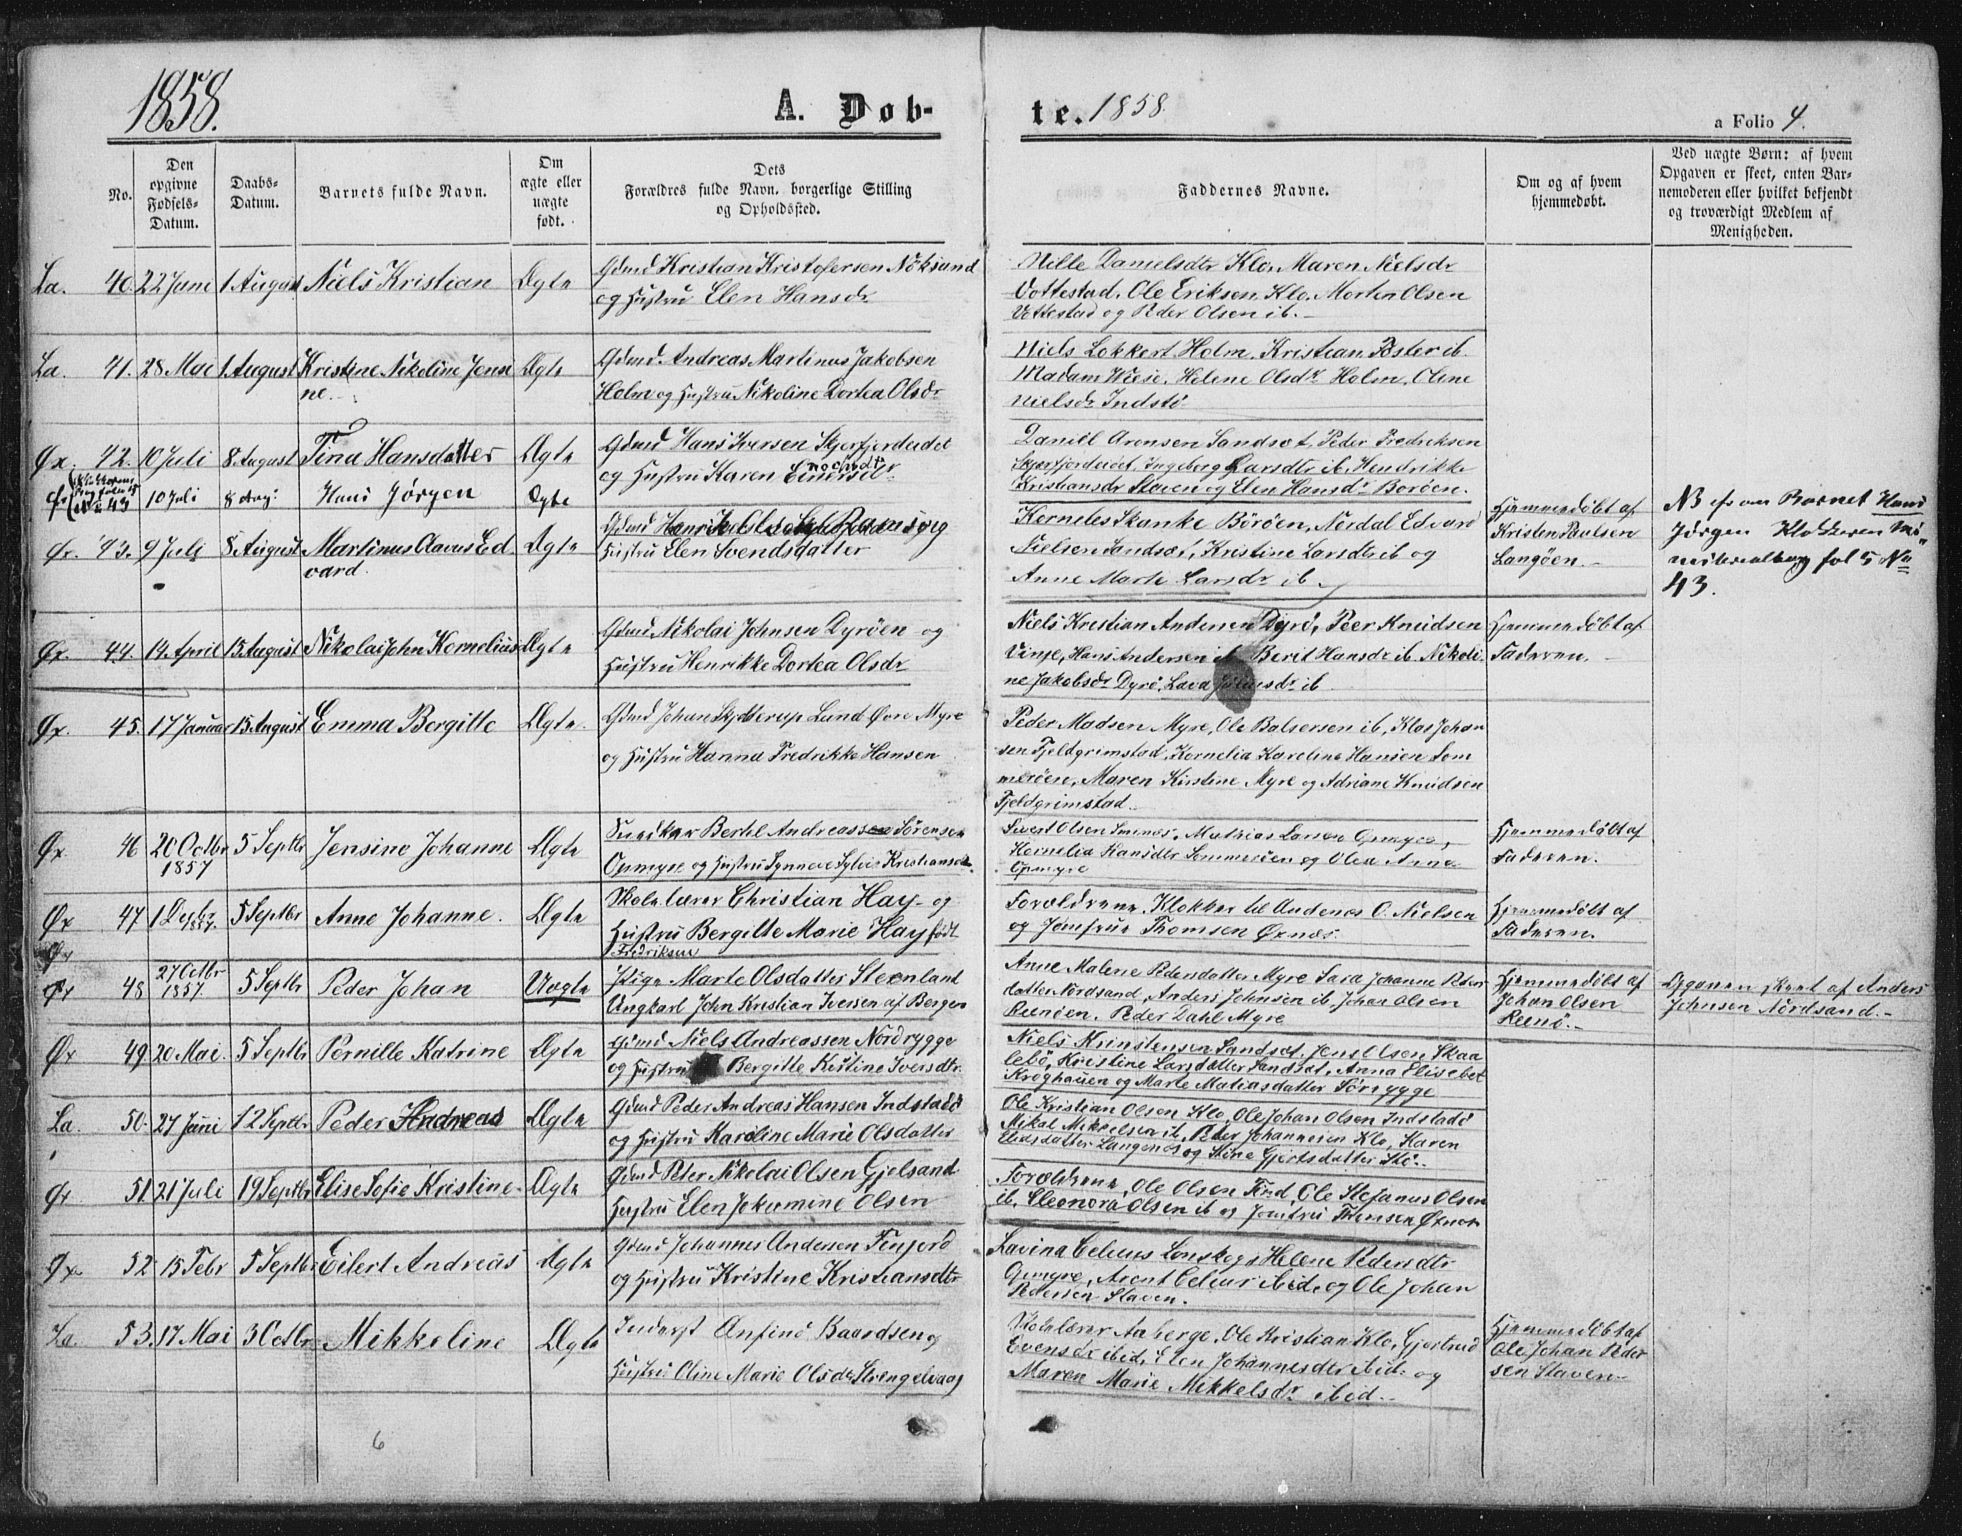 1858.
A. Døb-
te. 1858
a Folio 4.
No.
Den opgivne Fødsels-Datum.
Daabs-Datum.
Barnets fulde Navn.
Om ægte eller uægte født.
Dets Forældres fulde Navn, borgerlige Stilling og Opholdssted.
Faddernes Navne.
Om og af hvem hjemmedøbt.
Ved uægte Børn: af hvem Opgaven er skeet, enten Barnemoderen eller hvilket bekjendt og troværdigt Medlem af Menigheden.
La. 40. 22 Juni 1 August Niels Kristian Ægte Gdmd Kristian Kristofersen Nöksund
og Hustru Elen Hansdr
Nille Danielsdtr Klo, Maren Nielsdr
Vottestad, Ole Eriksen Klo, Morten Olsen
Vettestad og Peder Olsen ib.
La. 41. 28 Mai 1 August Kristine Nikoline Jensi
ne. Ægte Gdmd. Andreas Martinus Jakobsen
Holm og Hustru Nikoline Dortea Olsdr
Niels Lokkert Holm, Kristian ib.
Madam Wiese, Helene Olsdr Holm, Oline
Nielsdr Indstö
Øx. 42. 10 Juli 8 August Tina Hansdatter Ægte Gdmd Hans Iversen Skjerfjordeidet
og Hustru Karen
Daniel Arensen Sandset, Peder Fredriksen
Skjerfjordeidet, Ingeborg Larsdtr ib, Hendrikke
Kristiansdr Staven og Elen Hansdr Boröen.
43 10 Juli 8 Aug: Hans Jørgen Ægte
Øx. 43. 9 Juli 8 August Martinus Olavus Ed
vard. Ægte Gdmd Ramsvig
Hustru Elen Svendsdatter
Korneles Skanke Böröen, Nordal Edvard
Nielsen Sandset, Kristine Larsdtr ib og
Anne Marte Larsdr ib.
Hjemmedöbt af
Kristen Paulsen
Langöen.
NB om Barnet Hans
Jörgen Klokkeren Mi-
nisterialbog fol 5 No
43.
Øx. 44. 14 April 15 August Nikolai John Kornelius Ægte Gdmd Nikolai Johnsen Dyröen og
Hustru Henrikke Dortea Olsdr
Niels Krestian Andersen Dyrö, Peer Knudsen
Vinje, Hans Andersen ib Berit Hansdr ib Nikoli
ne Jakobsdr Dyrö, Lava ib
Hjemmedöbt af
Faderen.
Øx. 45. 17 Januar 15 August Emma Bergitte Ægte. Gdmd Johan Lund Övre Myre
og Hustru Hanna Fredrikke Hansen
Peder Madsen Myre, Ole Balsersen ib, Klas Johan
sen Fjeldgrimstad, Kornelia Karoline Hansen Som
meröen, Maren Kirstine Myre og Adriane Knudsen
Fjeldgrimstad.
Øx 46 20 Octbr
1857 5 Septbr Jensine Johanne Ægte Bertel Andreassen Sörensen
Opmyre og Hustru Kristiansdr.
Sivert Olsen Smines, Mathias Larsen Opmyre,
Kornelia Hansdtr Sommeröen og Olea Anna
Opmyre
Hjemmedöbt af
Faderen.
Øx 47 1 Decbr
1857. 5 Septbr Anne Johanne. Ægte Skolelærer Christian Hay og
Hustru Bergitte Marie Hay født
Fredriksen
Forældrene, Klokker til Andenæs O. Nielsen
og Jomfrue Thomsen Øxnæs.
Hjemmedöbt af
Faderen.
Øx
Øx 48 27 Octbr
1857. 5 Septbr Peder Johan Uægte Pige Marte Olsdatter Steenland
Ungkarl John Kristian Iversen af Bergen
Anne Malene Pedersdatter Myre Sara Johanne Peder
datter Nordsand, Anders Johnsen ib, Johan Olsen
Reenöen. Peder Dahl Myre
Hjemmedöbt af
Johan Olsen
Reenö.
Opgaven skeet af Anders
Johnsen Nordsand.
Øx 49. 20 Mai. 5 Septbr Pernille Katrine Ægte Gdmd Niels Andreassen Nordrygge
og Hustru Bergitte Kristine Iversdtr.
Niels Krinstensen Sandset, Jens Olsen Skaa
lebö, Kristine Larsdatter Sandset, Anna Elisebet
Kroghausen og Marte Matiasdatter Sörrygge
La. 50. 27 Juni 12 Septbr Peder Andreas Ægte Gdmd Peder Andreas Hansen Indstadö
og Hustru Karoline Marie Olsdatter
Ole Kristian Olsen Klo, Ole Johan Olsen Indstadö
Mikal Mikkelsen ib, Peder Johannesen Klo, Karen
Eliasdatter Langenes og Stine Gjertsdatter Stö.
Øx 51. 21 Juli 19 Septbr Elise Sofie Kristine Ægte Gdmd Peter Nikolai Olsen Gjelsand
Hustru Elen Jekumine Olsen
Forældrene, Ole Olsen Tind, Ole Stefanus Olsen
ib, Eleonora Olsen ib og Jomfru Thomsen Øxnæs
Øx. 52 15 Febr 5 Septbr Eilert Andreas Ægte Gdmd Johannes Andersen Finfjord
og Hustru Kristine Kristiansdtr
Lavina Celius Lonskog, Helene Pedersdtr
Opmyre, Arent Celius ibid, og Ole Johan
Pedersen Staven.
La. 53. 17 Mai 3 Octbr Mikkeline Ægte Inderst Anfind Baardsen og
Hustru Oline Marie Olsdr Strengelvaag
Skolelærer Aaberge, Ole Kristian Klo, Gjertrud
Evensdr ibid, Elen Johannesdtr ibid: og
Maren Marie Mikkelsdr ibid.
Hjemmedöbt af
Ole Johan Peder
sen Staven
6